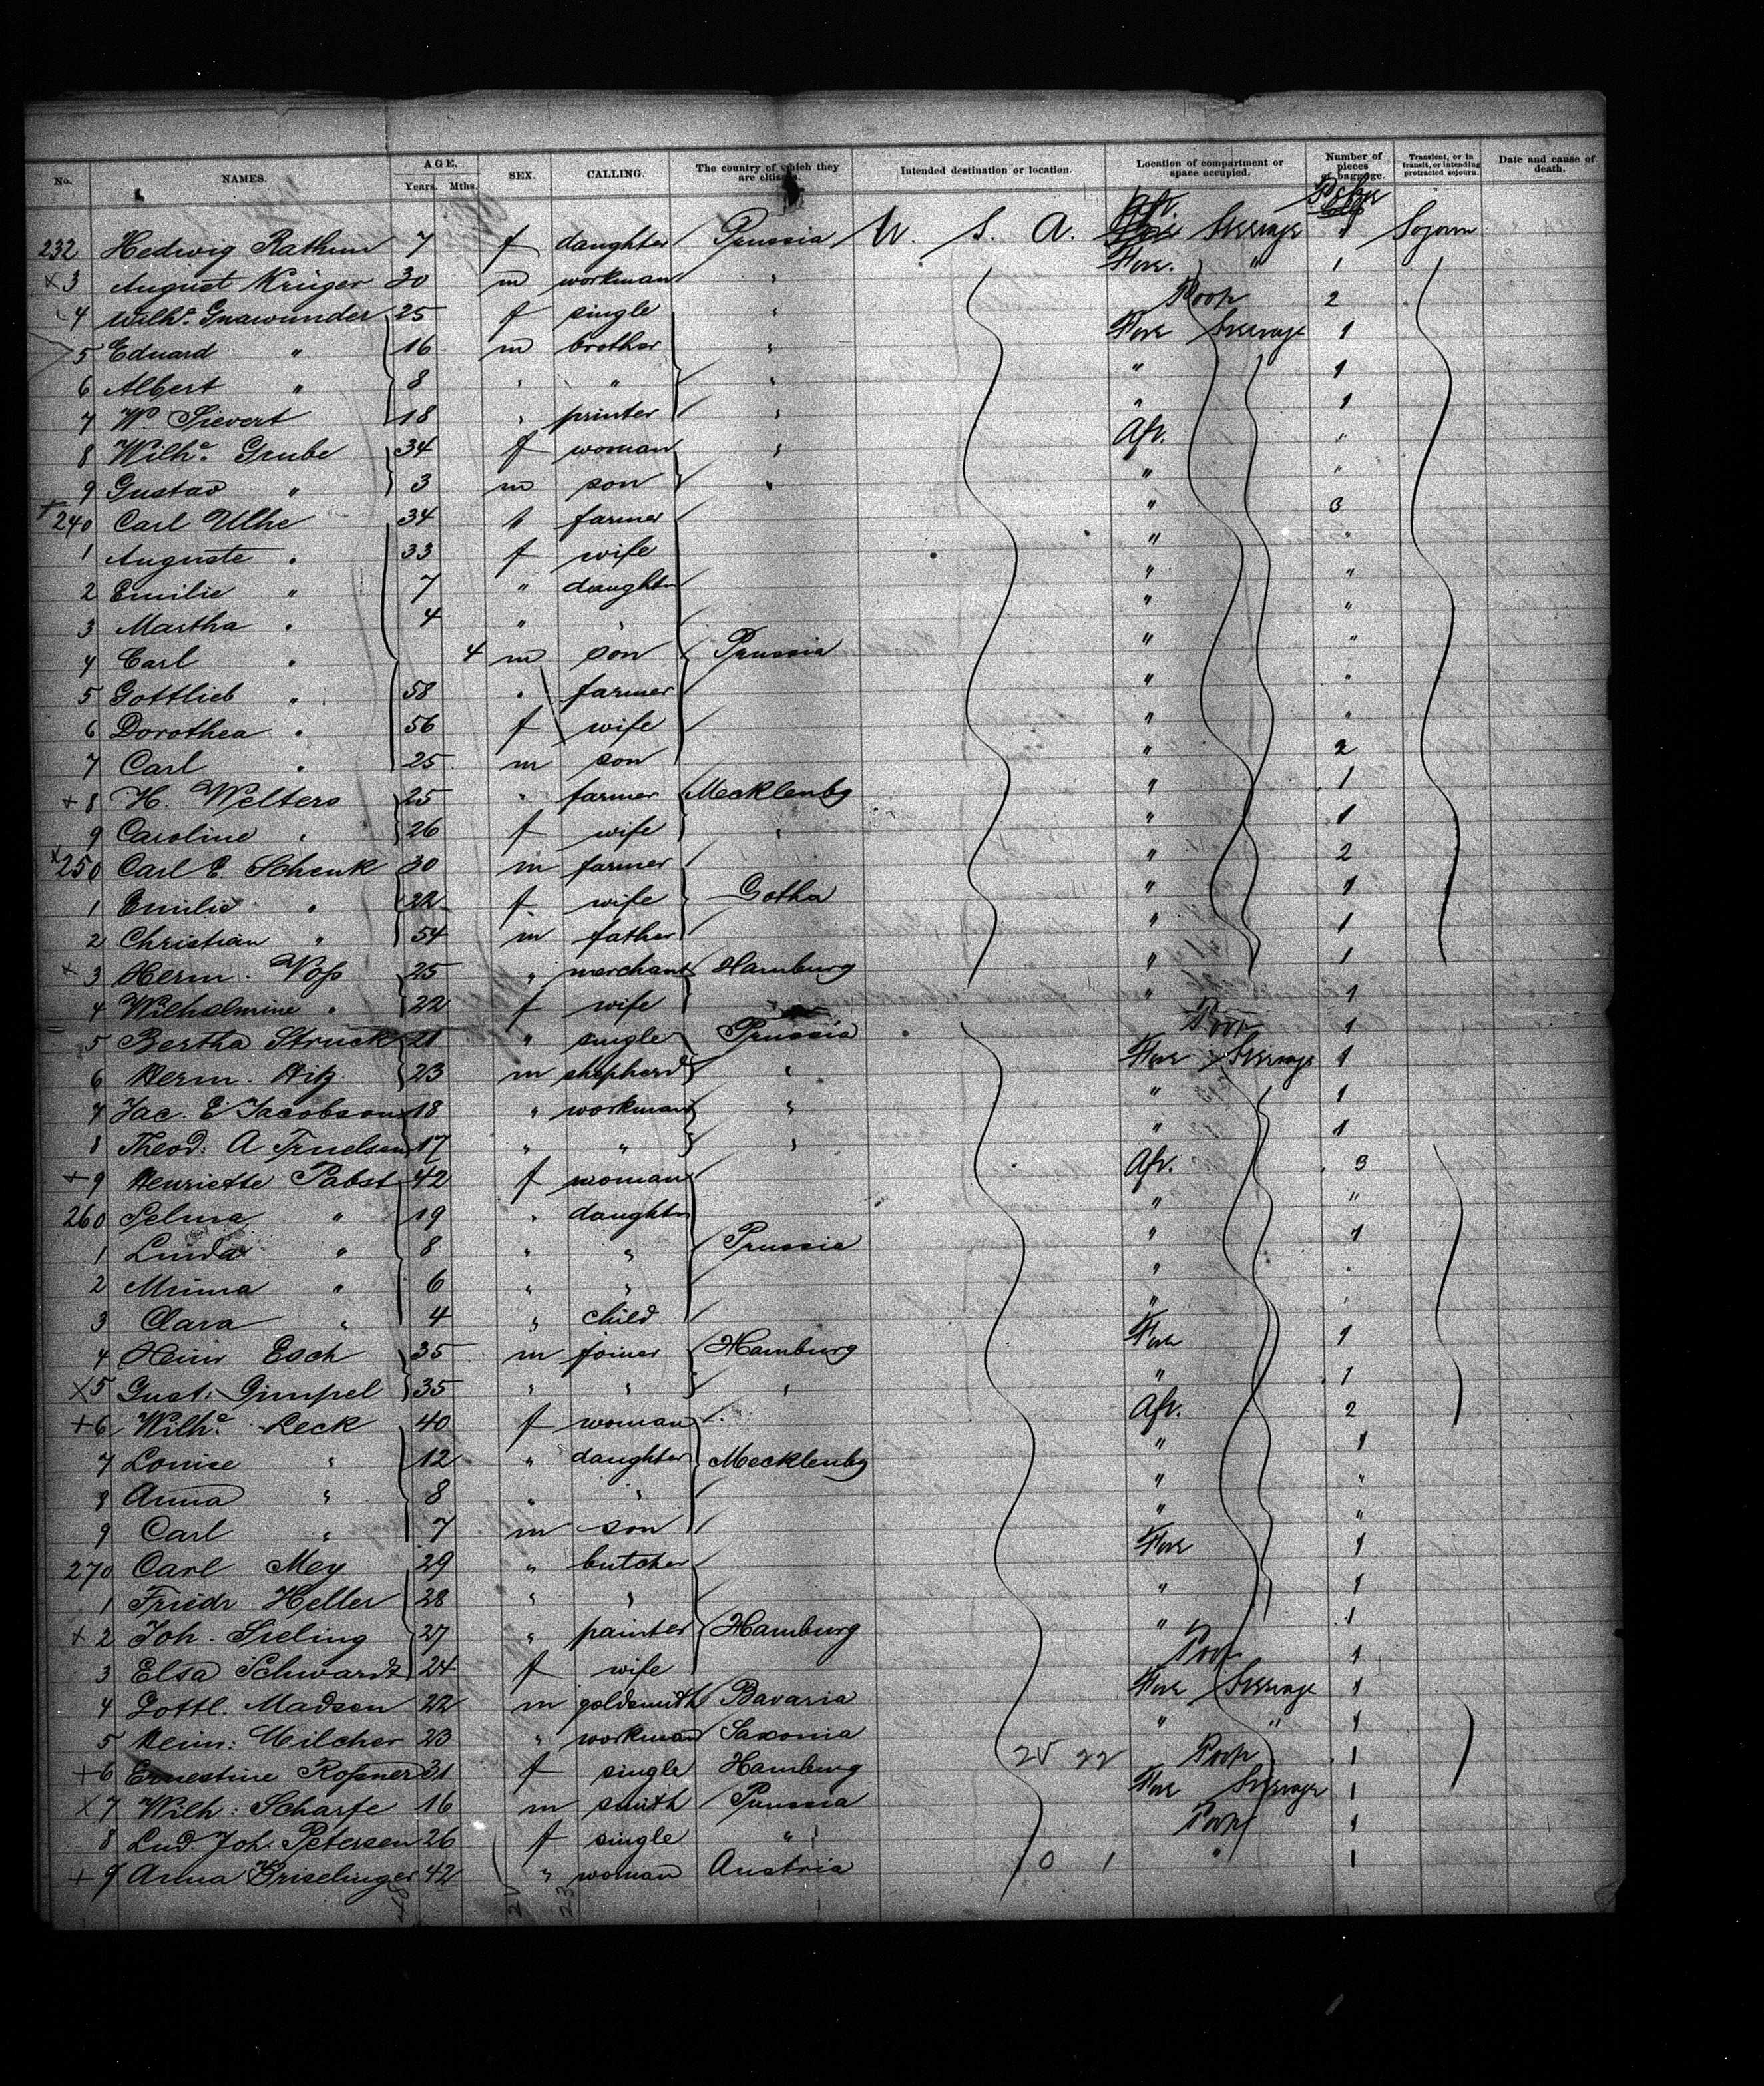 No. NAMES. AGE. Years. Mths. SEX. CALLING. The country of which they are citizens. Intended destination or location. Location of compartment or space occupied. Number of pieces of baggage. Transient, or in transit, or intending protracted sojourn. Date and cause of death.
232 Hedwig Rathun 7 f daughter Prussia U. S. A. Steerage 1 Sojourn
x 3 August Krüger 30 m workman " Fore. " 1
4 Wilh.e Gnawunder 25 f single " Poop 2
5 Eduard " 16 m brother " Fore Steerage 1
6 Albert " 8 " " " " 1
7 W. Sievert 18 " printer " " 1
8 Wilh.e Grube 34 f woman " Aft. "
9 Gustav " 3 m son " " "
+ 240 Carl Ulhe 34 farmer " 3
1 Auguste " 33 f wife " "
2 Emilie " 7 " daughter " "
3 Martha " 4 " " " "
4 Carl " 4 m son Prussia " "
5 Gottlieb " 58 " farmer " "
6 Dorothea " 56 f wife " "
7 Carl " 25 m son " 2
+ 8 H. Welters 25 " farmer Mecklenbg " 1
9 Caroline " 26 f wife " " 1
x 250 Carl E. Schenk 30 m farmer " 2
1 Emilie " 22 f wife Gotha " 1
2 Christian " 54 m father " 1
x 3 Herm. Voß 25 " merchant Hamburg " 1
4 Wilhelmine " 22 f wife " 1
5 Bertha Struck 21 " single Prussia Poop 1
6 Herm. 23 m shepherd " Fore Steerage 1
7 Jac. E. Jacobson 18 " workman " " 1
8 Theod: A Truelsen 17 " " " " 1
+ 9 Henriette Pabst 42 f woman Aft. 3
260 Selma " 19 " daughter " "
1 Linda " 8 " " Prussia " 1
2 Minna " 6 " " " "
3 Clara " 4 " child " "
4 Heinr Esch 35 m joiner Hamburg Fore 1
x 5 Gust: Gimpel 35 " " " " 1
+ 6 Wilh.e Leck 40 f woman Aft. 2
7 Louise " 12 " daughter Mecklenbg " 1
8 Anna " 8 " " " "
9 Carl " 7 m son " "
270 Carl Mey 29 " butcher Fore 1
1 Friedr Heller 28 " " " 1
x 2 Joh. Sieling 27 " painter Hamburg " 1
3 Elsa Schwardt 24 f wife Poop 1
4 Gottl. Madsen 22 m goldsmith Bavaria Fore Steerage 1
5 Heinr: Milcher 23 " workman Saxonia " " 1
+ 6 Ernestine Roßner 31 f single Hamburg 22 Poop 1
x 7 Wilh: Scharfe 16 m smith Prussia Fore Steerage 1
8 Lud. Joh. Petersen 26 f single " Poop 1
+ 9 Anna Griselinger 42 " woman Austria 0 1 " 1
23